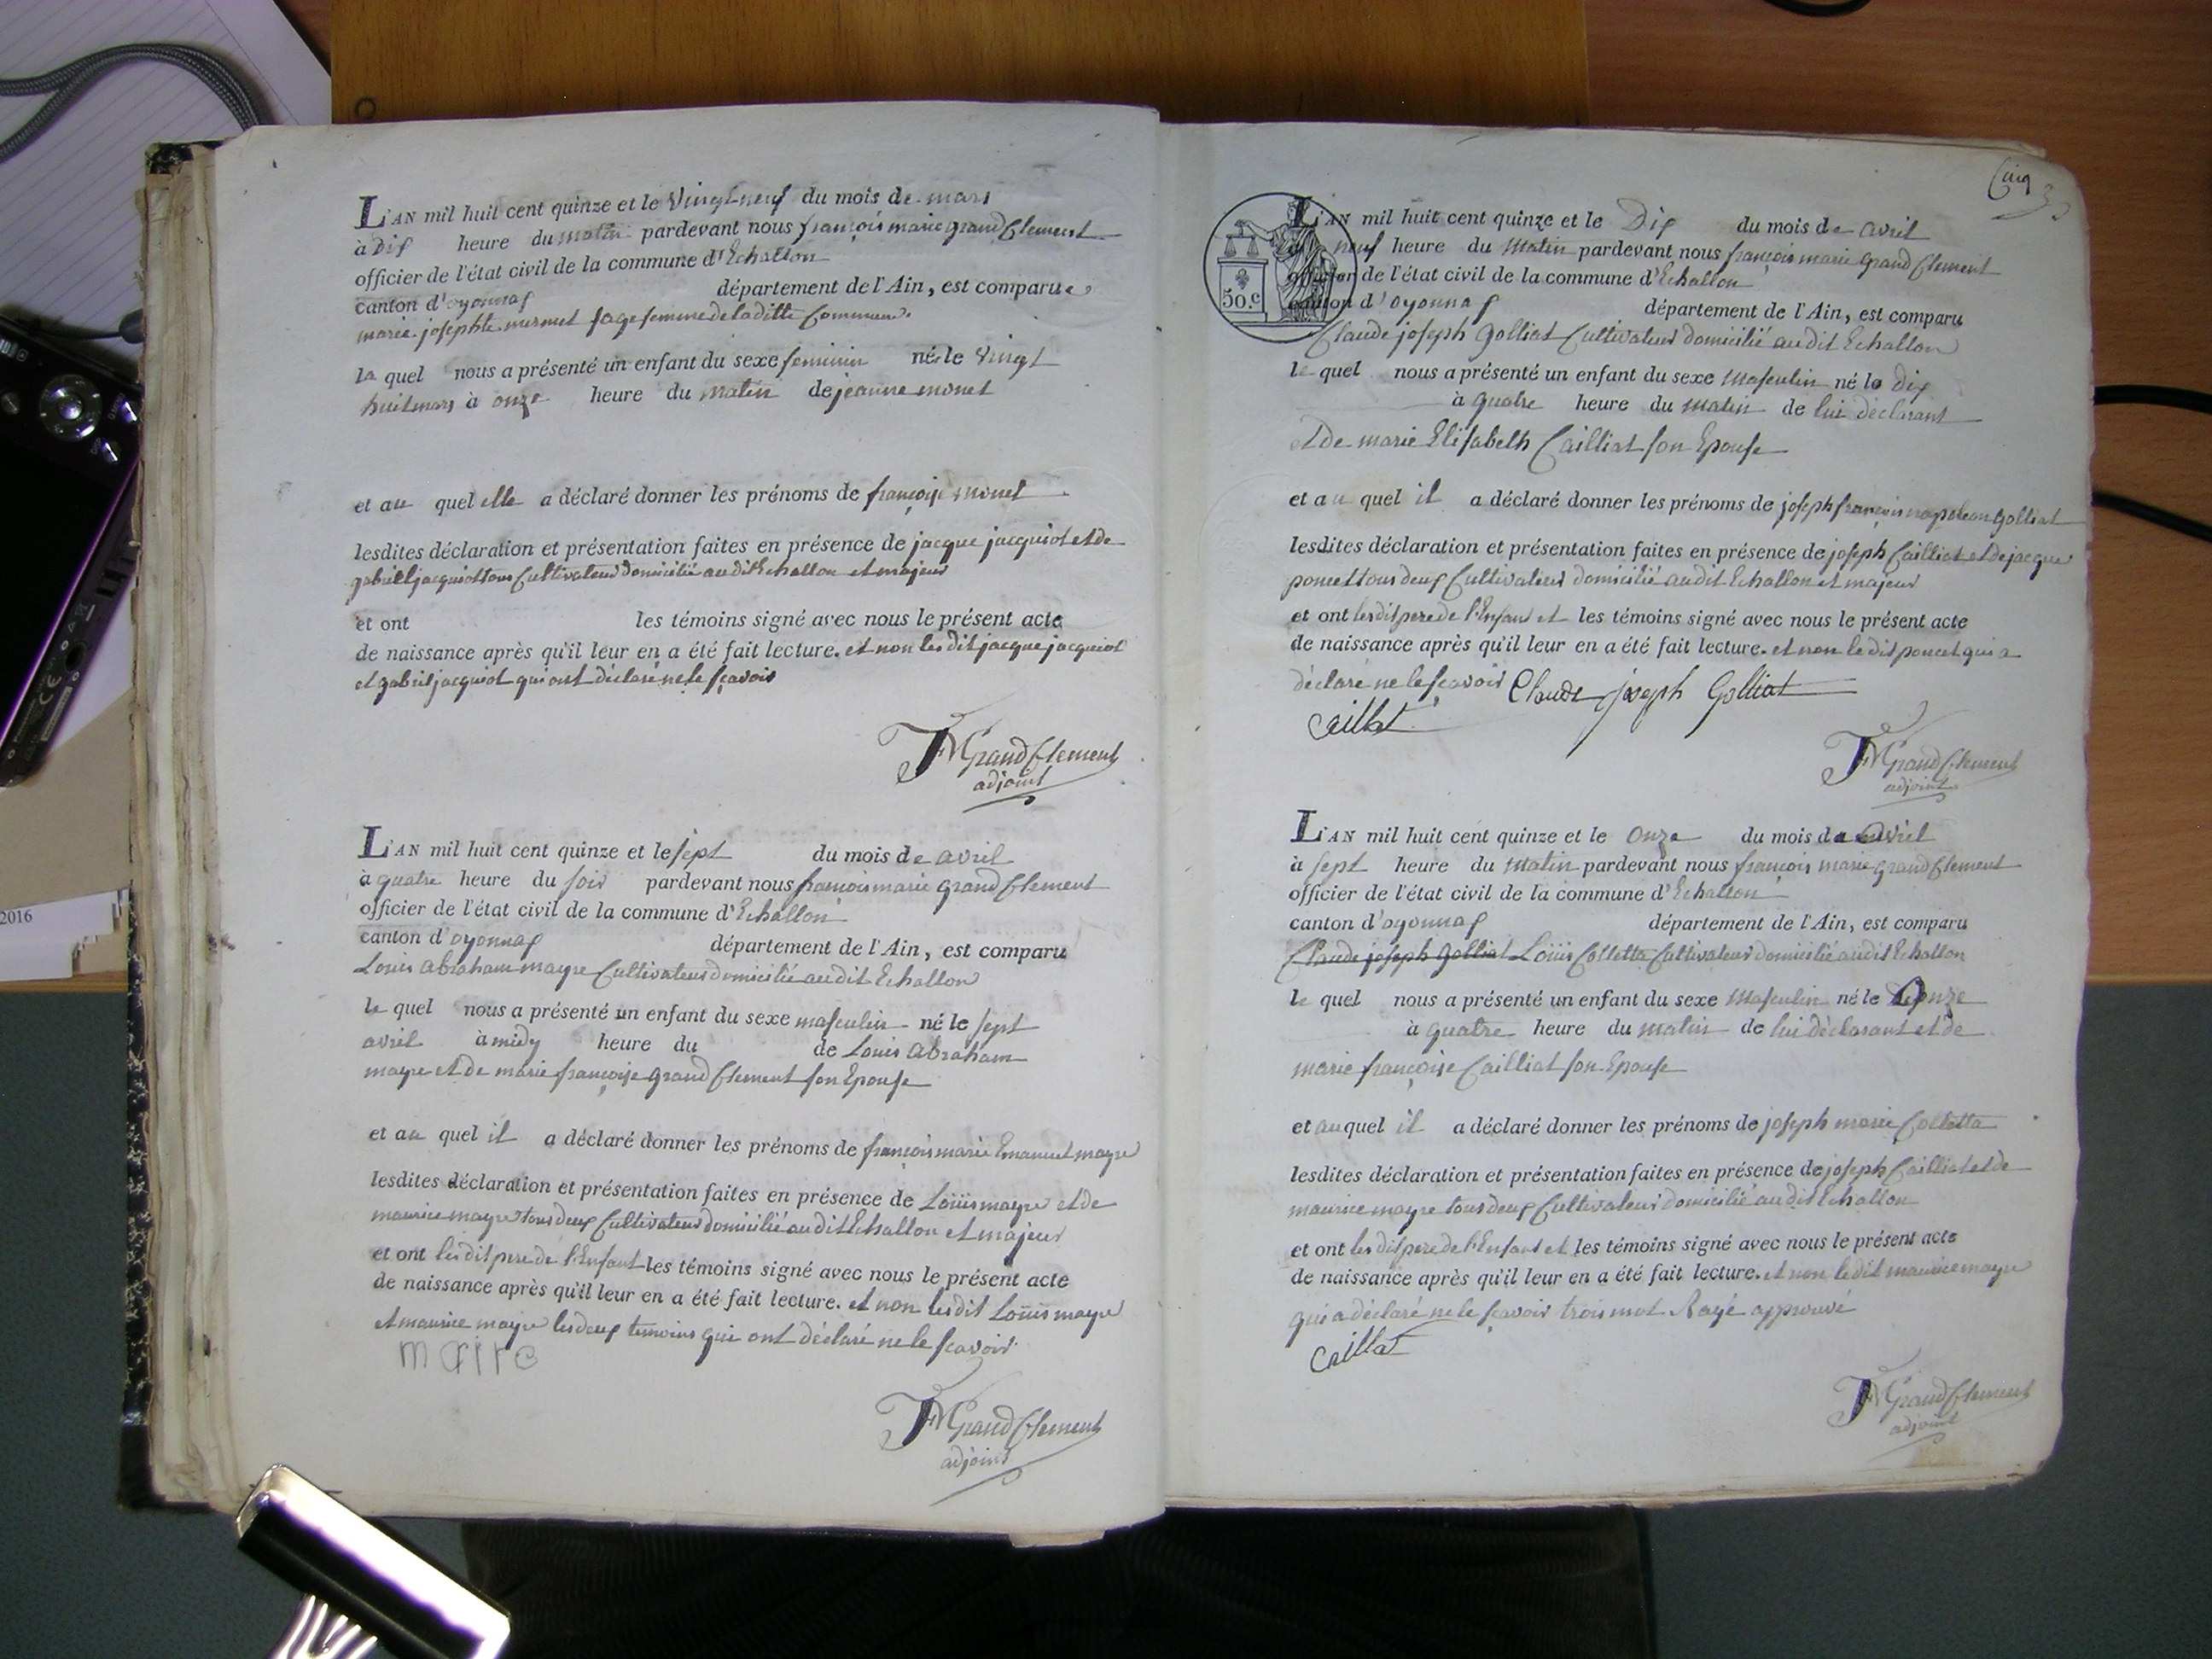 L'AN mil huit cent quinze et le vingt neuf du mois de mars
à dix heure du matin pardevant nous françois marie grand Clement
officier de l'état civil de la commune d'Echallon
canton d'oyonnax département de l'Ain, est comparue
marie josephte mermet sage femme de la ditte Commune.
la quel nous a présenté un enfant du sexe feminin né le vingt
huit mars à onze heure du matin de jeanne monet
et au quel elle a déclaré donner les prénoms de françoise monet
lesdites déclaration et présentation faites en présence de jacque jacquiot et de
gabriel jacquiot tous Cultivateur domicilié au dit Echallon et majeur
et ont les témoins signé avec nous le présent acte
de naissance après qu'il leur en a été fait lecture. et non les dit jacque jacquiot
et gabriel jacquiot qui ont déclaré ne le sçavoir
FM Grand Clement
adjoint
L'AN mil huit cent quinze et le sept du mois de avril
à quatre heure du soir pardevant nous françois marie grand Clement
officier de l'état civil de la commune d'Echallon
canton d'oyonnax département de l'Ain, est comparu
Louis Abraham mayre Cultivateur domicilié au dit Echallon
le quel nous a présenté un enfant du sexe masculin né le sept
avril à midy heure du de Louis Abraham
mayre et de marie françoise grand Clement son Epouse
et au quel il a déclaré donner les prénoms de françois marie Emanuel mayre
lesdites déclaration et présentation faites en présence de Loüis mayre et de
maurice mayre tous deux Cultivateur domicilié au dit Echallon et majeur
et ont les dit pere de l'Enfant les témoins signé avec nous le présent acte
de naissance après qu'il leur en a été fait lecture. et non les dit Loüis mayre
et maurice mayre les deux temoins qui ont déclaré ne le sçavoir
maire
FM Grand Clement
adjoint
2016
Cinq
50.c
L'AN mil huit cent quinze et le Dix du mois de avril
neuf heure du matin pardevant nous françois marie grand Clement
officier de l'état civil de la commune d'Echallon
canton d'oyonnax département de l'Ain, est comparu
Claude joseph golliat Cultivateur domicilié au dit Echallon
le quel nous a présenté un enfant du sexe masculin né le dix
à quatre heure du matin de lui déclarant
et de marie Elisabeth Cailliat son Epouse
et au quel il a déclaré donner les prénoms de joseph françois napoleon golliat
lesdites déclaration et présentation faites en présence de joseph Cailliat et de jacque
poncet tous deux Cultivateur domicilié au dit Echallon et majeur
et ont les dit pere de l'Enfant et les témoins signé avec nous le présent acte
de naissance après qu'il leur en a été fait lecture. et non le dit poncet qui a
déclaré ne le sçavoir Claude joseph Golliat
Caillat
FM Grand Clement
adjoint
L'AN mil huit cent quinze et le onze du mois de avril
à sept heure du matin pardevant nous françois marie grand Clement
officier de l'état civil de la commune d'Echallon
canton d'oyonnax département de l'Ain, est comparu
Claude joseph golliat Loüis Colletta Cultivateur domicilié au dit Echallon
le quel nous a présenté un enfant du sexe masculin né le onze
à quatre heure du matin de lui déclarant et de
marie françoise Cailliat son Epouse
et au quel il a déclaré donner les prénoms de joseph marie Colletta
lesdites déclaration et présentation faites en présence de joseph Cailliat et de
maurice mayre tous deux Cultivateur domicilié au dit Echallon
et ont les dit pere de l'Enfant et les témoins signé avec nous le présent acte
de naissance après qu'il leur en a été fait lecture. et non le dit maurice mayre
qui a déclaré ne le sçavoir trois mot Rayé approuvé
Caillat
FM Grand Clement
adjoint